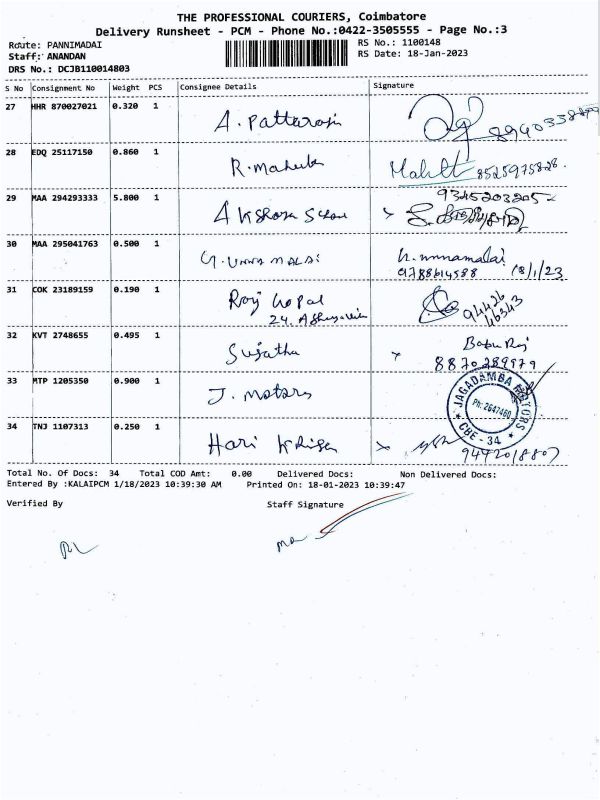 THE PROFESSIONAL COURIERS, Coimbatore
Delivery Runsheet - PCM - Phone No.:0422-3505555 - Page No.:3
Route: PANNIMADAI
RS No.: 1100148
Staff: ANANDAN
RS Date: 18-Jan-2023
DRS No.: DCJB110014803
S No Consignment No Weight PCS Consignee Details Signature
27 HHR 870027021 0.320 1 A. Pattaraj
28 EDQ 25117150 0.860 1 R. 8525975828
29 MAA 294293333 5.800 1 9345203205
30 MAA 295041763 0.500 1 G. unnamalai
9788614588 18/1/23
31 COK 23189159 0.190 1 Raj Gopal 94426
24. 46343
32 KVT 2748655 0.495 1 Sujatha Babu Raj
8870289979
33 MTP 1205350 0.900 1 J. motors JAGADAMBA MOTORS
Ph: 2647460
CBE - 34
34 TNJ 1107313 0.250 1 Hari
9442018807
Total No. Of Docs: 34 Total COD Amt: 0.00 Delivered Docs: Non Delivered Docs:
Entered By :KALAIPCM 1/18/2023 10:39:30 AM Printed On: 18-01-2023 10:39:47
Verified By Staff Signature